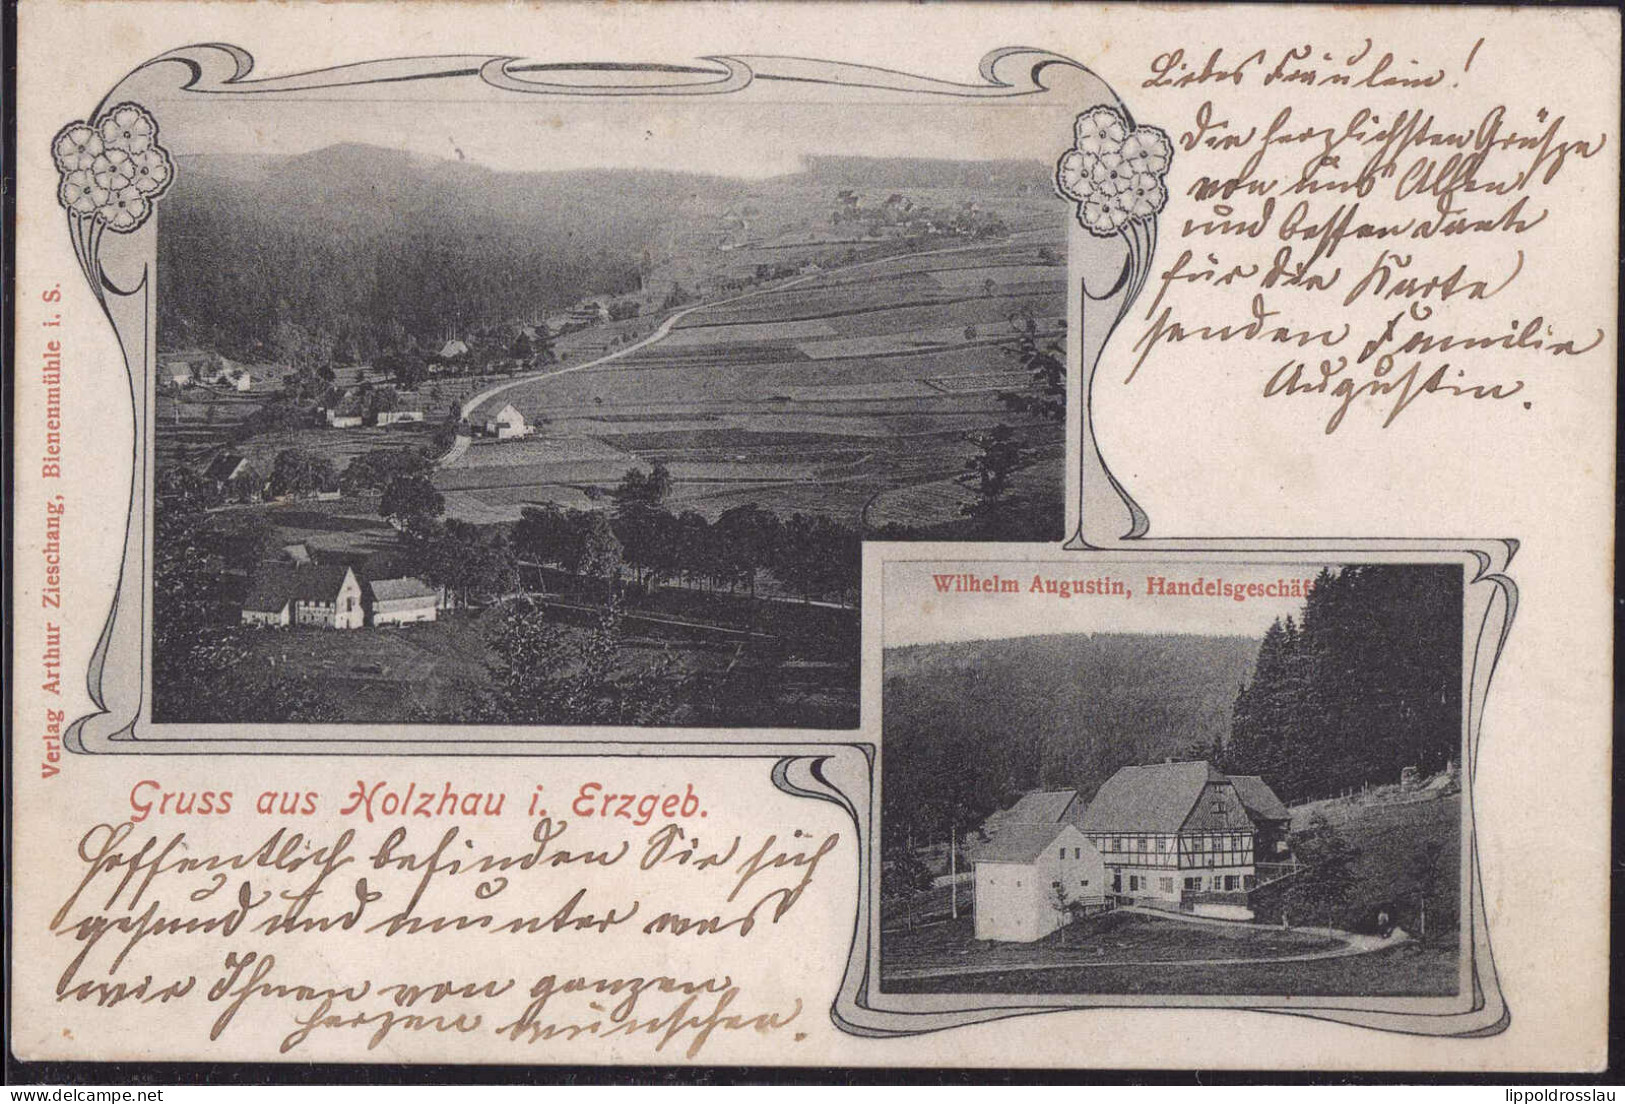 Liebes Fräulein!
Die herzlichsten Grüße
von uns Allen
und besten Dank
für die Karte
senden Familie
Augustin.
Verlag Arthur Zieschang, Bienenmühle i. S.
Wilhelm Augustin, Handelsgeschäf
Gruss aus Holzhau i. Erzgeb.
Hoffentlich befinden Sie sich
gesund und munter was
wir Ihnen von ganzen
Herzen wünschen.
lippoldrosslau